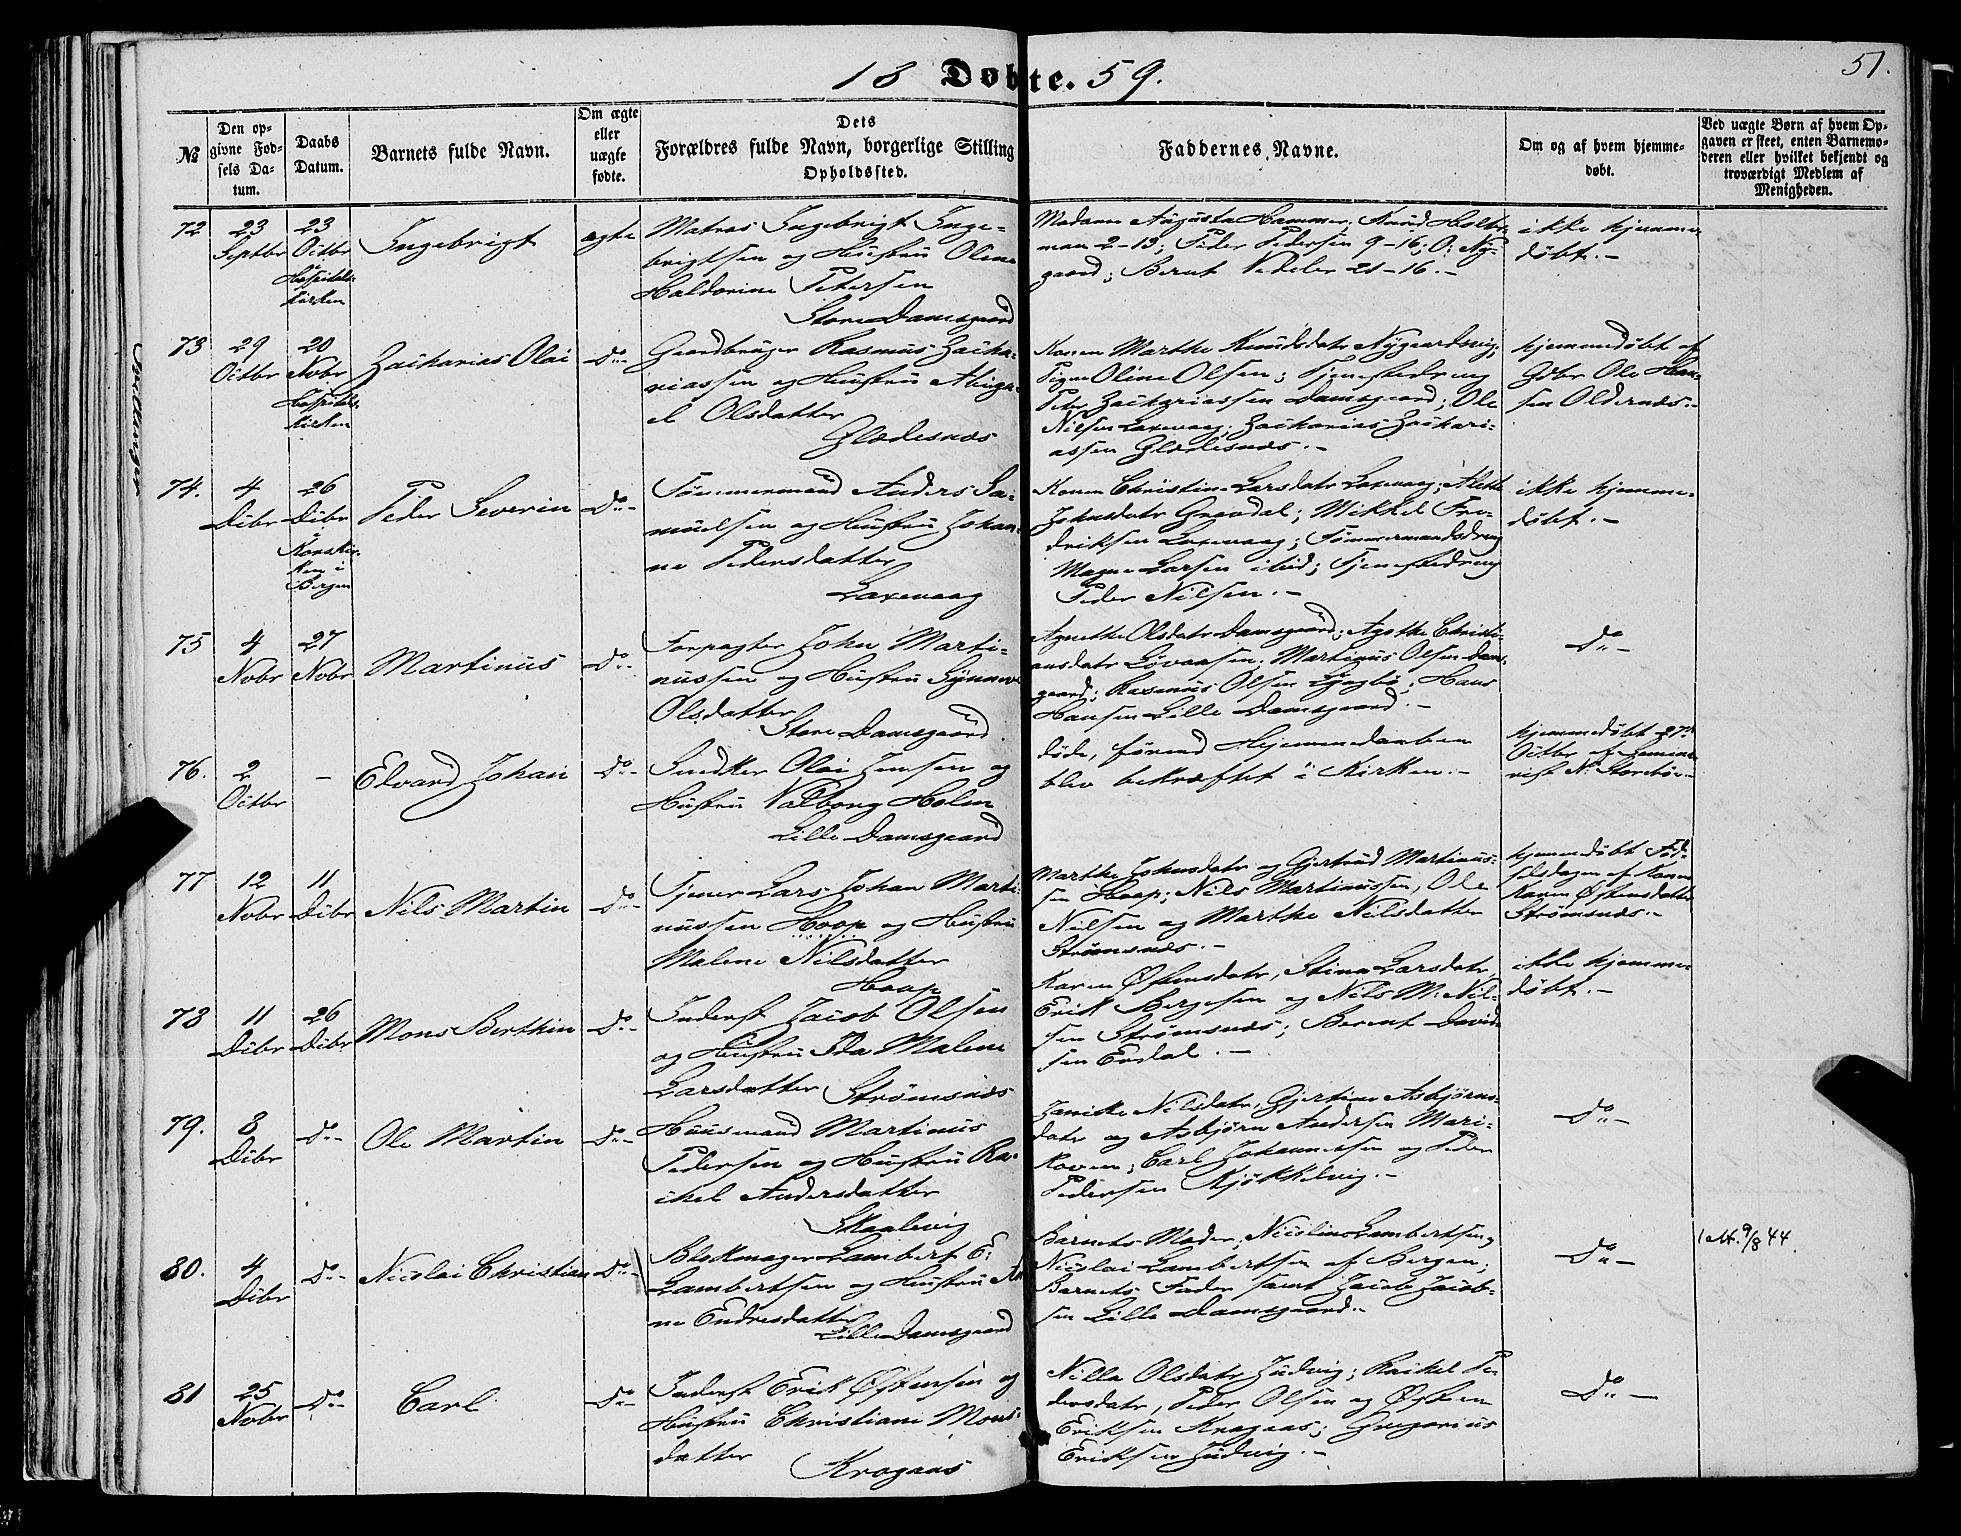 51.
18 Døbte. 59.
№
Den op-
givne Fød-
sels Da-
tum.
Daabs
Datum.
Barnets fulde Navn.
Om ægte
eller
uægte
fødte.
Dets
Forældres fulde Navn, borgerlige Stilling
Opholdssted.
Faddernes Navne.
Om og af hvem hjemme-
døbt.
Ved uægte Børn af hvem Op-
gaven er skeet, enten Barnemo-
deren eller hvilket bekjendt og
troværdigt Medlem af
Menigheden.
72
23
Septbr
23
Octbr
Hospitals-
kirken
Ingebrigt
ægte
Matros Ingebrigt Inge-
brigtsen og Hustru Oline
Haldorine Petersen
Store Damsgaard
Madame Augusta Hammer; Knud Holter-
man 2-13; Peder Pedersen 9-16; O: Ny-
gaard; Bernt Vedeler 21-16.-
ikke hjemme-
døbt.-
73
29
Octbr
20
Nobr
Hospitals-
kirken
Zacharias Olai
Do-
Gaardbruger Rasmus Zacha-
riassen og Hustru Abiga-
el Olsdatter
Gladesnæs
Konen Marthe Knudsdatr Nygaardsvig;
Pigen Oline Olsen; Tjenestedreng
Peter Zachariassen Damsgaard; Ole
Nilsen Laxevaag; Zacharias Zachari-
assen Gladesnæs.-
hjemmedøbt af
Gbr Ole Han-
sen Oldernæs.-
74.
4
Dcbr
26
Dcbr
Korskir-
ken i
Bergen
Peder Severin
Do-
Tømmermand Anders Sa-
muelsen og Hustru Johan-
ne Pedersdatter
Laxevaag
Konen Christine Larsdatr Laxevaag; Alette
Johnsdatr Gravdal; Mikkel Fre-
driksen Laxevaag; Tømmermandsdreng
Magne Larsen ibid; Tjenestedreng
Peder Nilsen.-
ikke hjemme-
døbt.-
75
4
Nobr
27
Nobr
Martinus
Do-
Forpagter John Marti-
nussen og Hustru Synneve
Olsdatter
Store Damsgaard
Agnethe Olsdatr Damsgaard; Agathe Christi-
ansdatr Løvaasen; Martinus Olsen Dams-
gaard; Rasmus Olsen Lyngbø; Hans
Hansen Lille Damsgaard.-
Do-
76.
2
Octbr
-
Edvard Johan
Do-
Snedker Olai Jensen og
Hustru Valborg Holm
Lille Damsgaard
døde, førend Hjemmedaaben
blev bekræftet i Kirken.-
hjemmedøbt 27de
Octbr af Semina-
rist N: Storebøe-
77
12
Nobr
11
Dcbr
Nils Martin
Do-
Tjener Lars Johan Marti-
nussen Hoop og Hustru
Malene Nilsdatter
Hoop
Marthe Johnsdatr og Gjertrud Martinus-
sen Hoop; Nils Martinussen, Ole
Nilsen og Marthe Nilsdatter
Strømsnæs.-
hjemmedøbt Fød-
selsdagen af Konen
Karen Østensdatter
Strømsnæs.-
78
11
Dcbr
26
Dcbr
Mons Berthin
Do-
Inderst Jacob Olsen
og Hustru Ida Malene
Larsdatter Strømsnæs
Karen Østensdatr, Stina Larsdatr,
Erik Bergesen og Nils M: Nil-
sen Strømsnæs; Berent David-
sen Erdal.-
ikke hjemme-
døbt.-
79.
8
Dcbr
Do-
Ole Martin
Do-
Huusmand Martinus
Pedersen og Hustru Ra-
chel Andersdatter
Skaalevig
Janicke Nilsdatr, Gjertine Asbjørns-
datr og Asbjørn Andersen Mari-
koven; Carl Johannessen og Peder
Pedersen Kjøkkelvig.-
Do-
80.
4
Dcbr
Do-
Nicolai Christian
Do-
Blokmager Lambert E:
Lambertsen og Hustru An-
ne Endresdatter
Lille Damsgaard
Barnets Moder, Nicoline Lambertsen,
Nicolai Lambertsen af Bergen;
Barnets Fader samt Jacob Jacob-
sen Lille Damsgaard.-
Do-
1 att. 9/8 44.
81
25
Nobr
Do-
Carl
Do-
Inderst Erik Østensen og
Hustru Christiane Mons-
datter
Kragaas
Nille Olsdatr Judvig; Rachel Pe-
dersdatr, Peder Olsen og Østen
Eriksen Kragaas; Gregorius
Eriksen Judvig.-
Do-